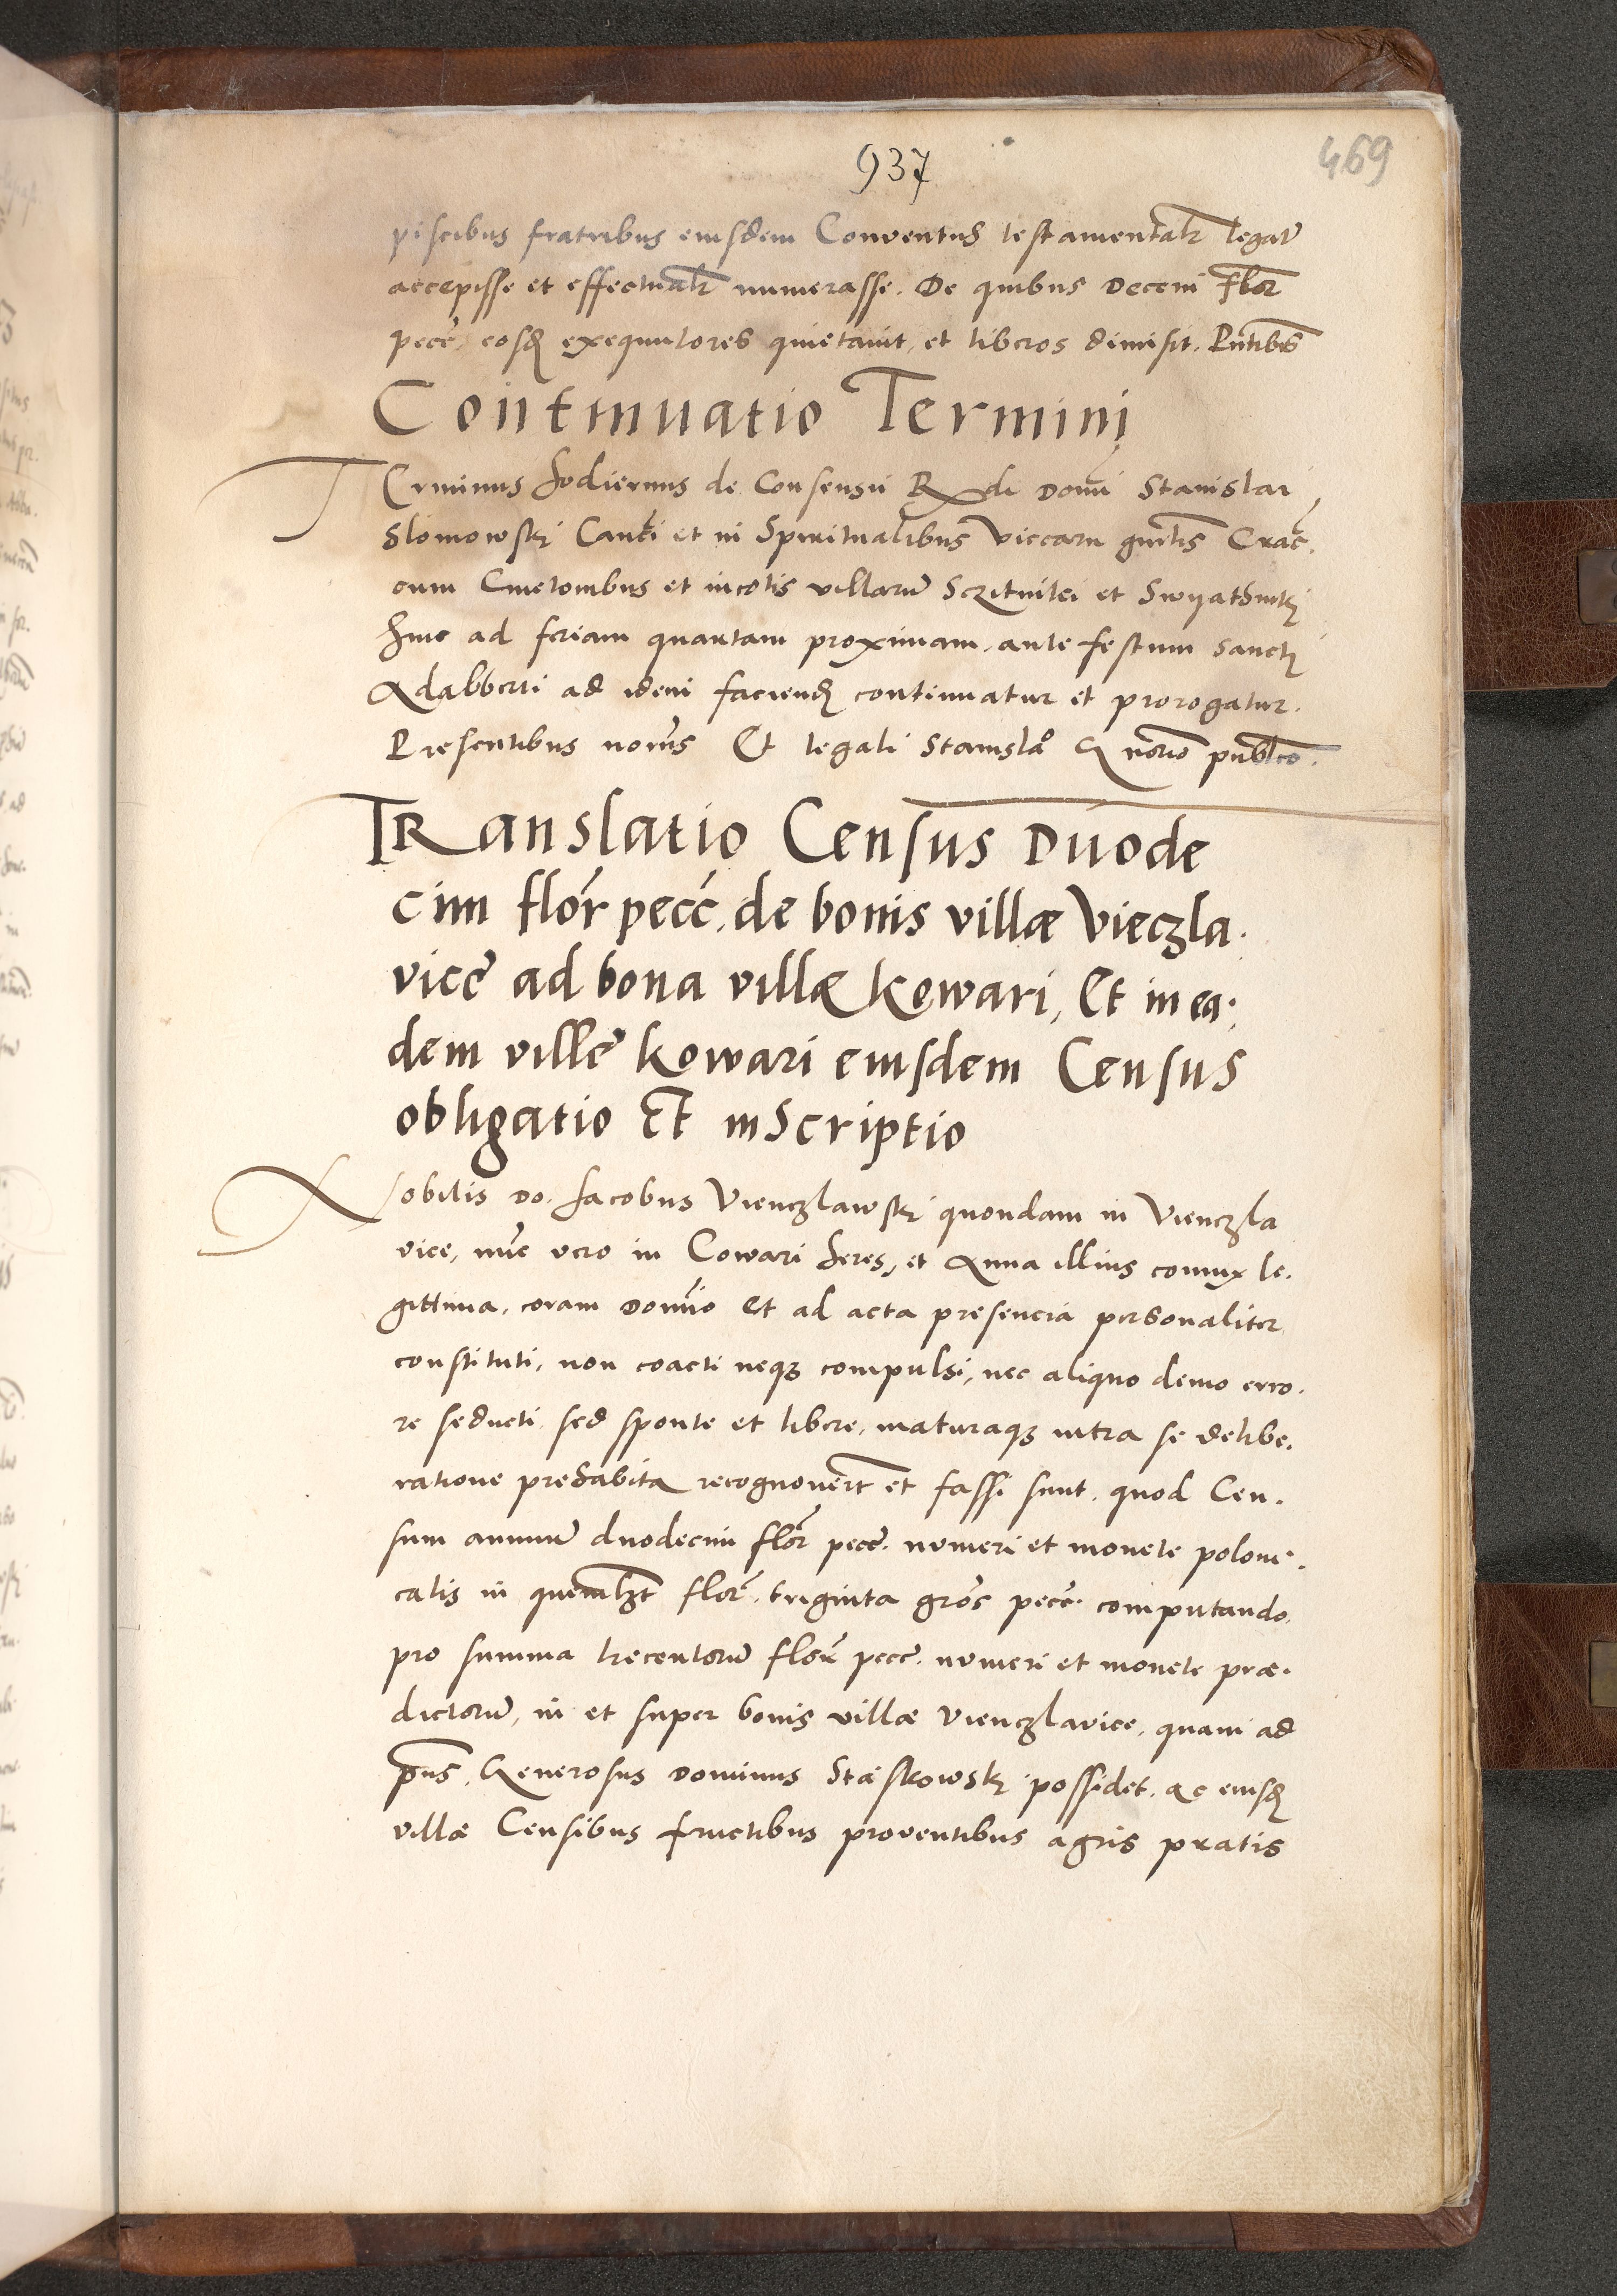 937
469
piscibus fratribus eiusdem Conventus testamentalr legat
accepisse et effectualr numerasse. De quibus Decem flor
pecc. eosd exequutores quietavit, et liberos dimisit. Pntibus
Continuatio Termini
TErminus hodiernus de Consensu Rdi Domi Stanislai
Slomowski Canci et in Spiritualibus Viccarii gnrlis Crac.
cum Cmetonibus et incolis villarum et
hinc ad feriam quartam proximam ante festum Sancti
Adalberti ad idem faciend continuatur et prorogatur.
Presentibus Et legali Stanislao G norio publico.
TRanslatio Census Duode
cim flor pecc. de bonis villæ Vieczla.
vice ad bona villæ Kowari, Et in ea.
dem villa Kowari eiusdem Census
obligatio Et inscriptio
Nobilis Do. Jacobus Vienczlawski quondam in Vienczla
vice, nunc vero in Cowari heres, et Anna illius coniux le.
gittima, coram Domino Et ad acta presencia personaliter
constituti, non coacti neq compulsi, nec aliquo demo erro.
re seducti, sed sponte et libere, maturaq intra se delibe.
ratione prehabita recognovert et fassi sunt. quod Cen.
sum annuum duodecim flor pecc. numeri et monete poloni.
calis in quemlzt flor. triginta gros pecc. computando,
pro summa trecentorum flor pecc. numeri et monete præ.
dictorum, in et super bonis villæ Vienczlavice, quam ad
pns, Generosus Dominus possidet, ac eiusd
villæ Censibus fructibus proventibus agris pratis